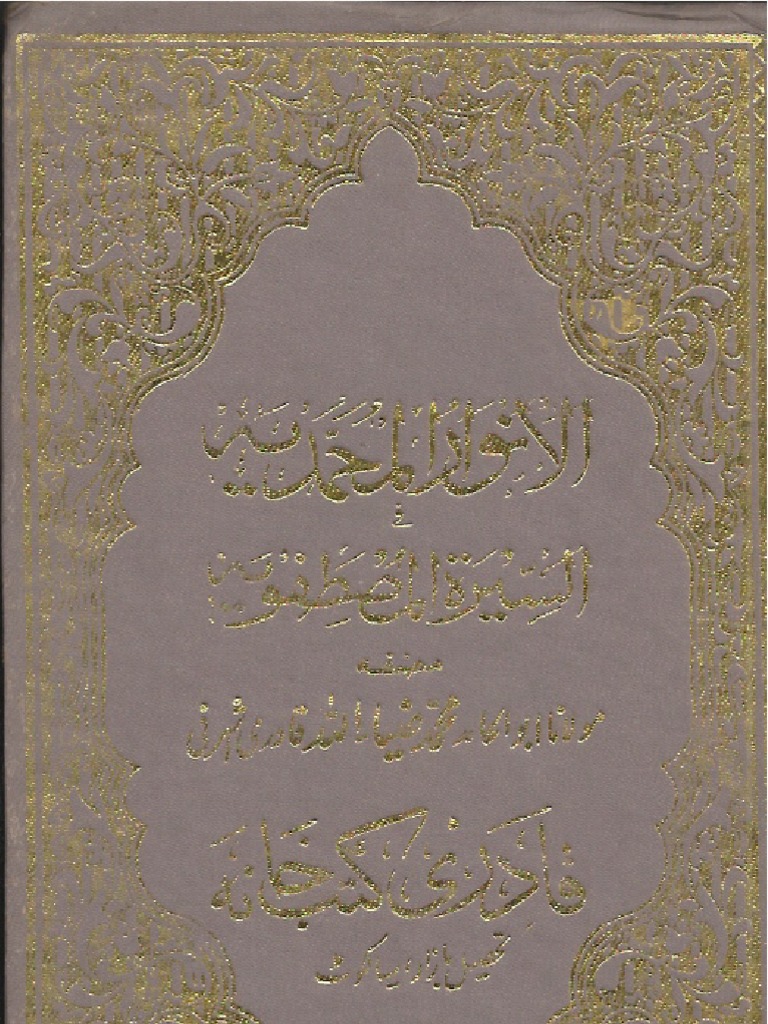 الأنوارُ المُحمَّدیہ
فی
السِّیرَۃ المُصْطَفَوِیہ
مصنفہ
مولانا ابوالحامد محمد ضیاء اللہ قادری اشرفی
قادری کتب خانہ
تحصیل بازار سیالکوٹ